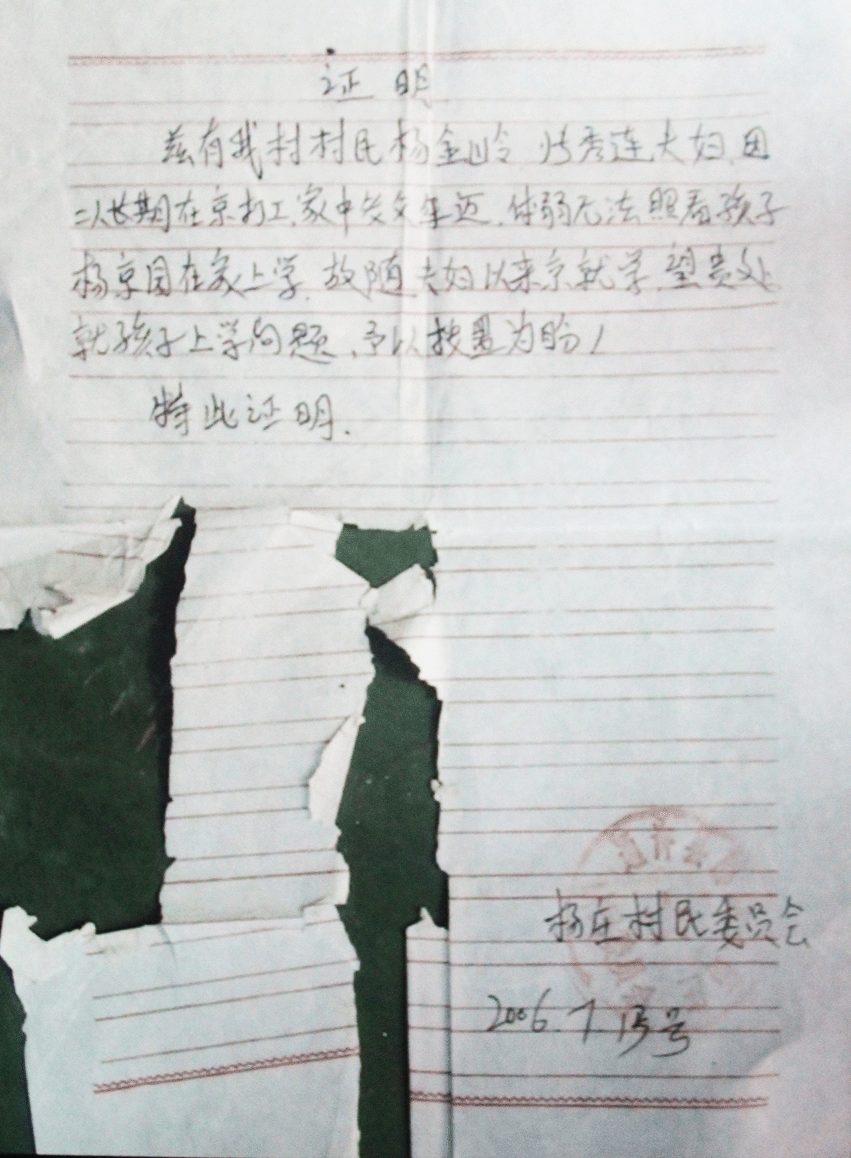 证明
兹有我村村民杨金岭 秀连夫妇,因
二人长期在京打工,家中父年迈,体弱无法照看孩子
杨京国在家上学,故随夫妇以来京就学,望贵处
就孩子上学问题,予以为盼!
特此证明.
杨庄村民委员会
2006.7.13号